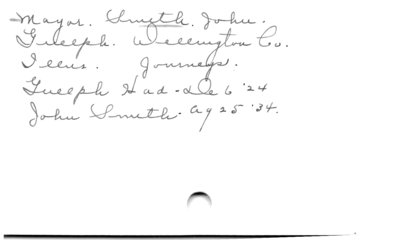 Mayor. Smith. John.
Guelph. Wellington Co.
Illus. Journeys.
Guelph Had - De 6 '24
John Smith. Ag 25 '34.